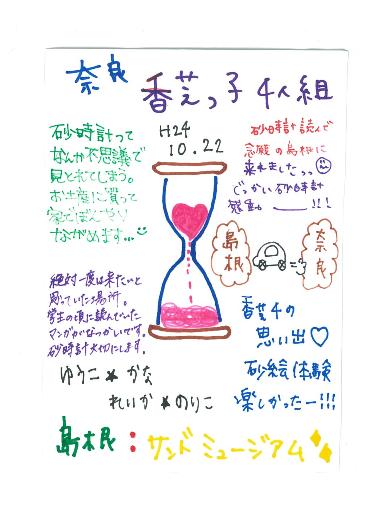 奈良
香芝っ子 4人組
H24
10.22
砂時計って
なんか不思議で
見とれてしまう。
お土産に買って
家でぼんやり
ながめます…
砂時計読んで
念願の島根に
来れましたっっ
でっかい砂時計
感動 ___!!!
島根
奈良
絶対一度は来たいと
思っていた場所。
学生の頃に読んでいた
マンガがなつかしいです。
砂時計大切にします。
香芝っ子の
思い出♡
砂絵体験
楽しかったー!!!
ゆうこ★かな
れいか★のりこ
島根:サンドミュージアム